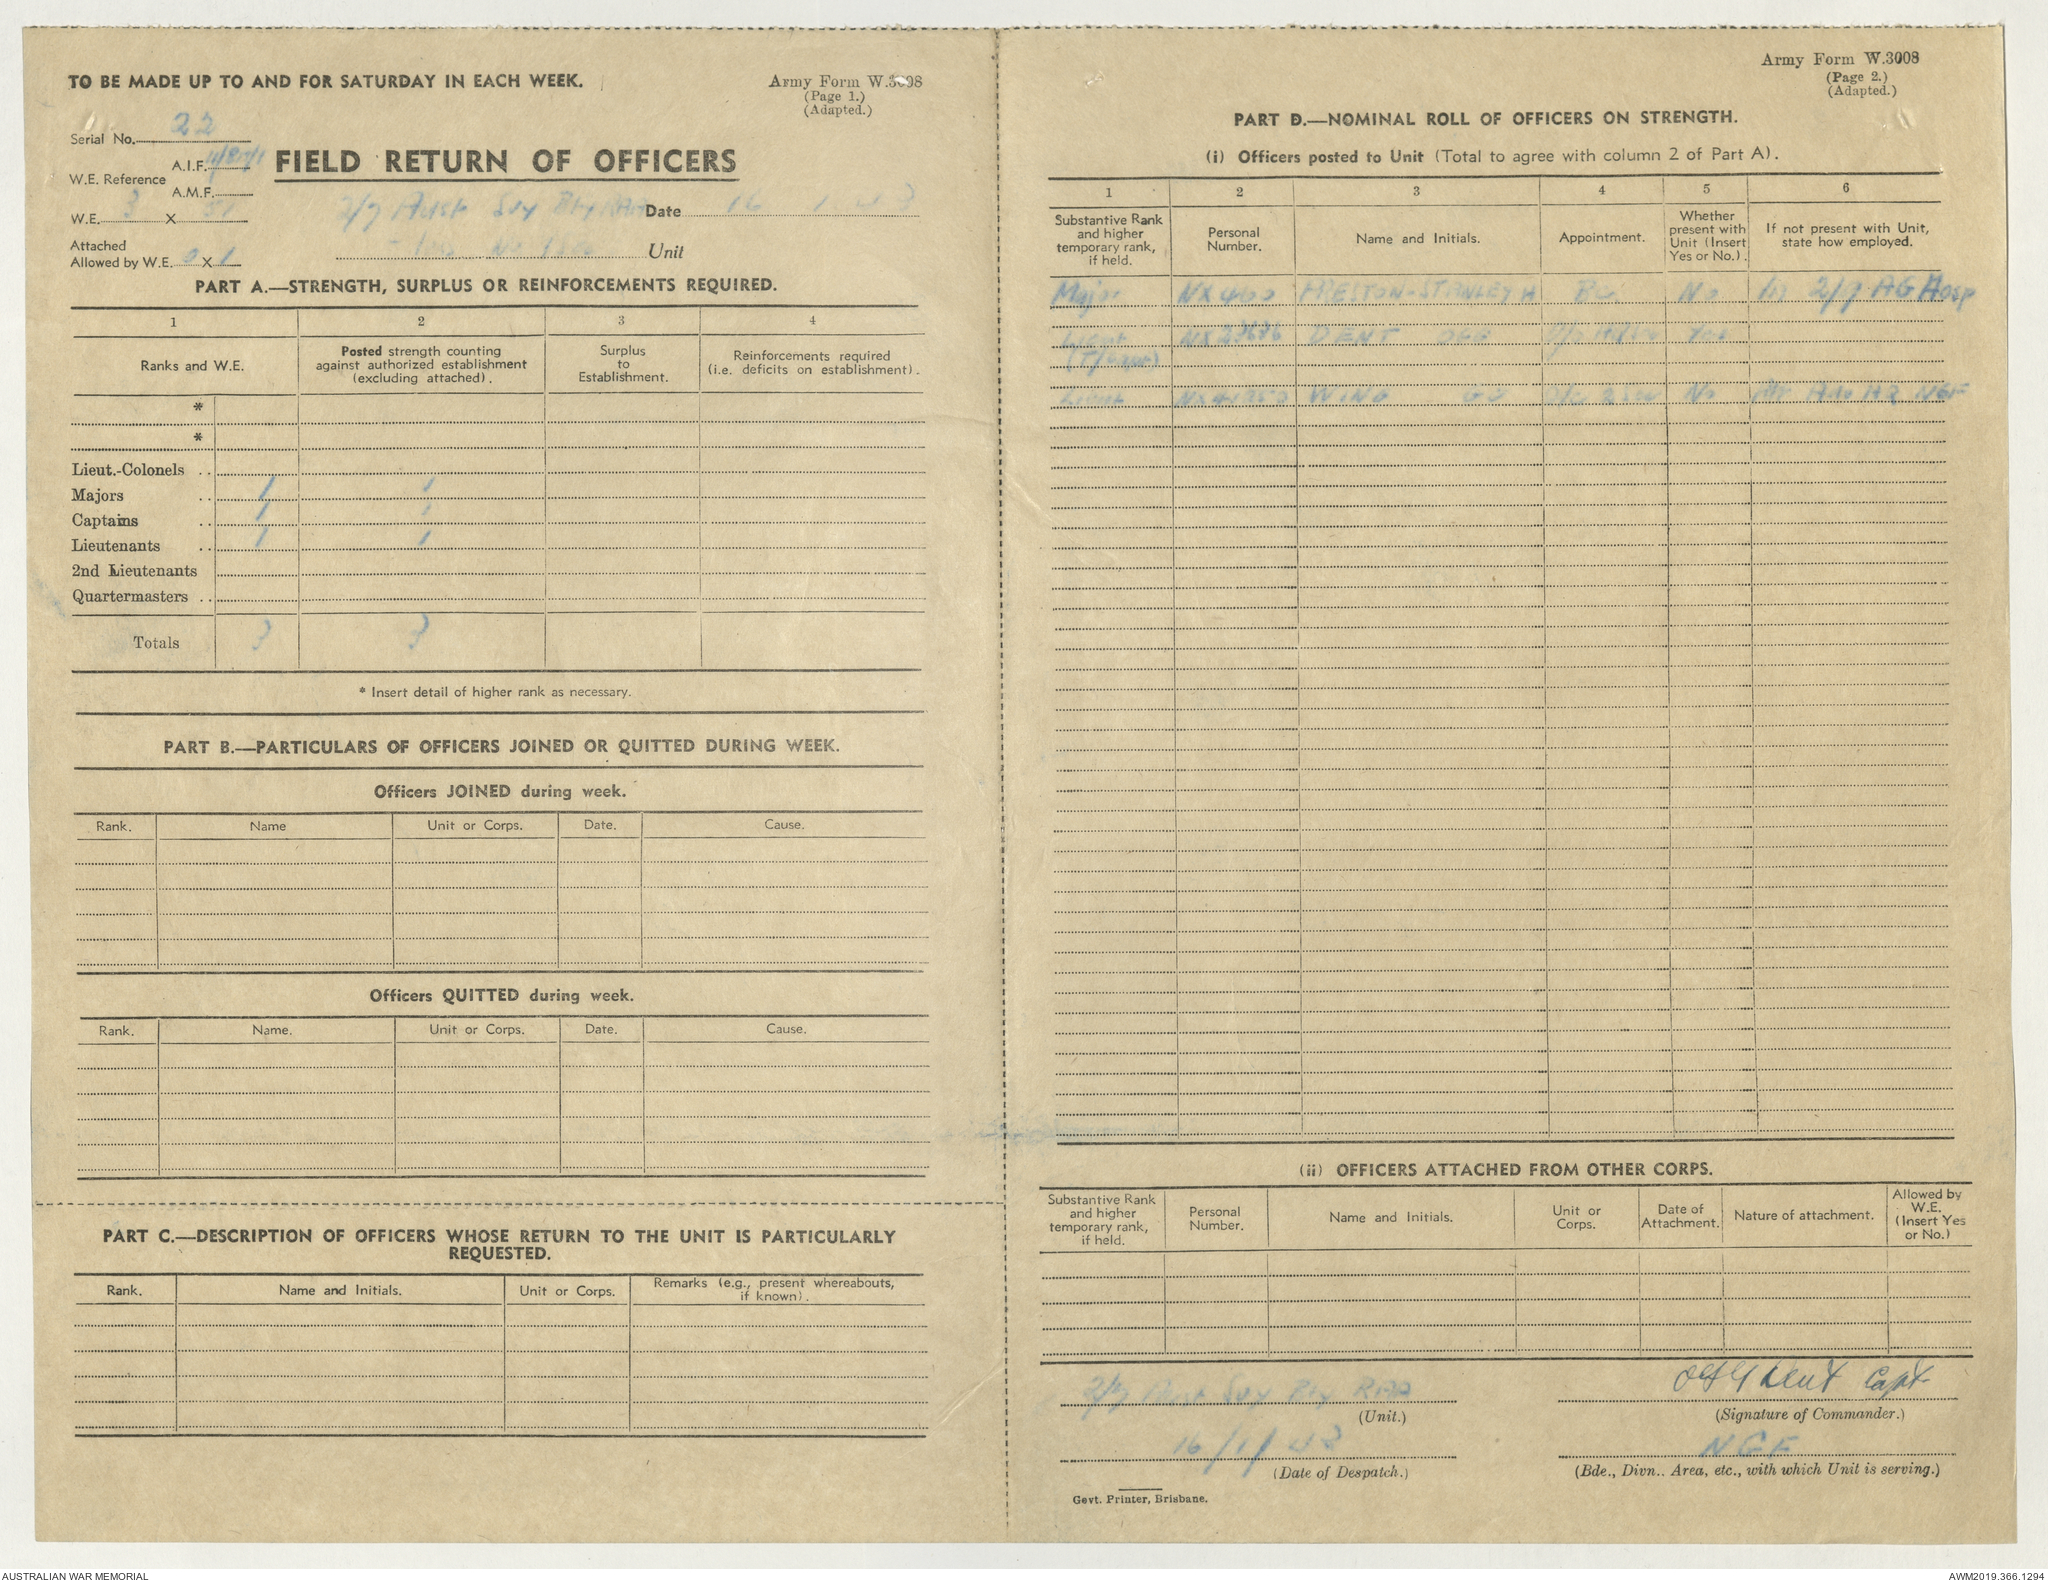 TO BE MADE UP TO AND FOR SATURDAY IN EACH WEEK.
Army Form W.3008
(Page 1.)
(Adapted.)
Serial No. 22
W.E. Reference
A.I.F.
A.M.F.
FIELD RETURN OF OFFICERS
W.E. 3 X 51
2/7 Aust Svy Bty RAA
Date 16 1 43
Attached
Allowed by W.E. 0 X 1
Unit
PART A.—STRENGTH, SURPLUS OR REINFORCEMENTS REQUIRED.
1 2 3 4
Ranks and W.E.
Posted strength counting against authorized establishment (excluding attached).
Surplus to Establishment.
Reinforcements required (i.e. deficits on establishment).
*
*
Lieut.-Colonels ..
Majors .. 1 1
Captains .. 1 1
Lieutenants .. 1 1
2nd Lieutenants
Quartermasters ..
Totals 3 3
* Insert detail of higher rank as necessary.
PART B.—PARTICULARS OF OFFICERS JOINED OR QUITTED DURING WEEK.
Officers JOINED during week.
Rank. Name Unit or Corps. Date. Cause.
Officers QUITTED during week.
Rank. Name. Unit or Corps. Date. Cause.
PART C.—DESCRIPTION OF OFFICERS WHOSE RETURN TO THE UNIT IS PARTICULARLY
REQUESTED.
Rank. Name and Initials. Unit or Corps. Remarks (e.g., present whereabouts, if known).
Army Form W.3008
(Page 2.)
(Adapted.)
PART D.—NOMINAL ROLL OF OFFICERS ON STRENGTH.
(i) Officers posted to Unit (Total to agree with column 2 of Part A).
1 2 3 4 5 6
Substantive Rank and higher temporary rank, if held.
Personal Number.
Name and Initials.
Appointment.
Whether present with Unit (Insert Yes or No.).
If not present with Unit, state how employed.
Major NX400 PRESTON-STANLEY H BC No In 2/9 AG Hosp
Lieut NX23686 DENT OFG Yes
(T/Capt)
Lieut WING GJ O/C 2 Sec No Att Adv HQ NGF
(ii) OFFICERS ATTACHED FROM OTHER CORPS.
Substantive Rank and higher temporary rank, if held.
Personal Number.
Name and Initials.
Unit or Corps.
Date of Attachment.
Nature of attachment.
Allowed by W.E. (Insert Yes or No.)
2/7 Aust Svy Bty RAA
(Unit.)
OFG Dent Capt
(Signature of Commander.)
16/1/43
(Date of Despatch.)
NGF
(Bde., Divn.. Area, etc., with which Unit is serving.)
Govt. Printer, Brisbane.
AUSTRALIAN WAR MEMORIAL
AWM2019.366.1294